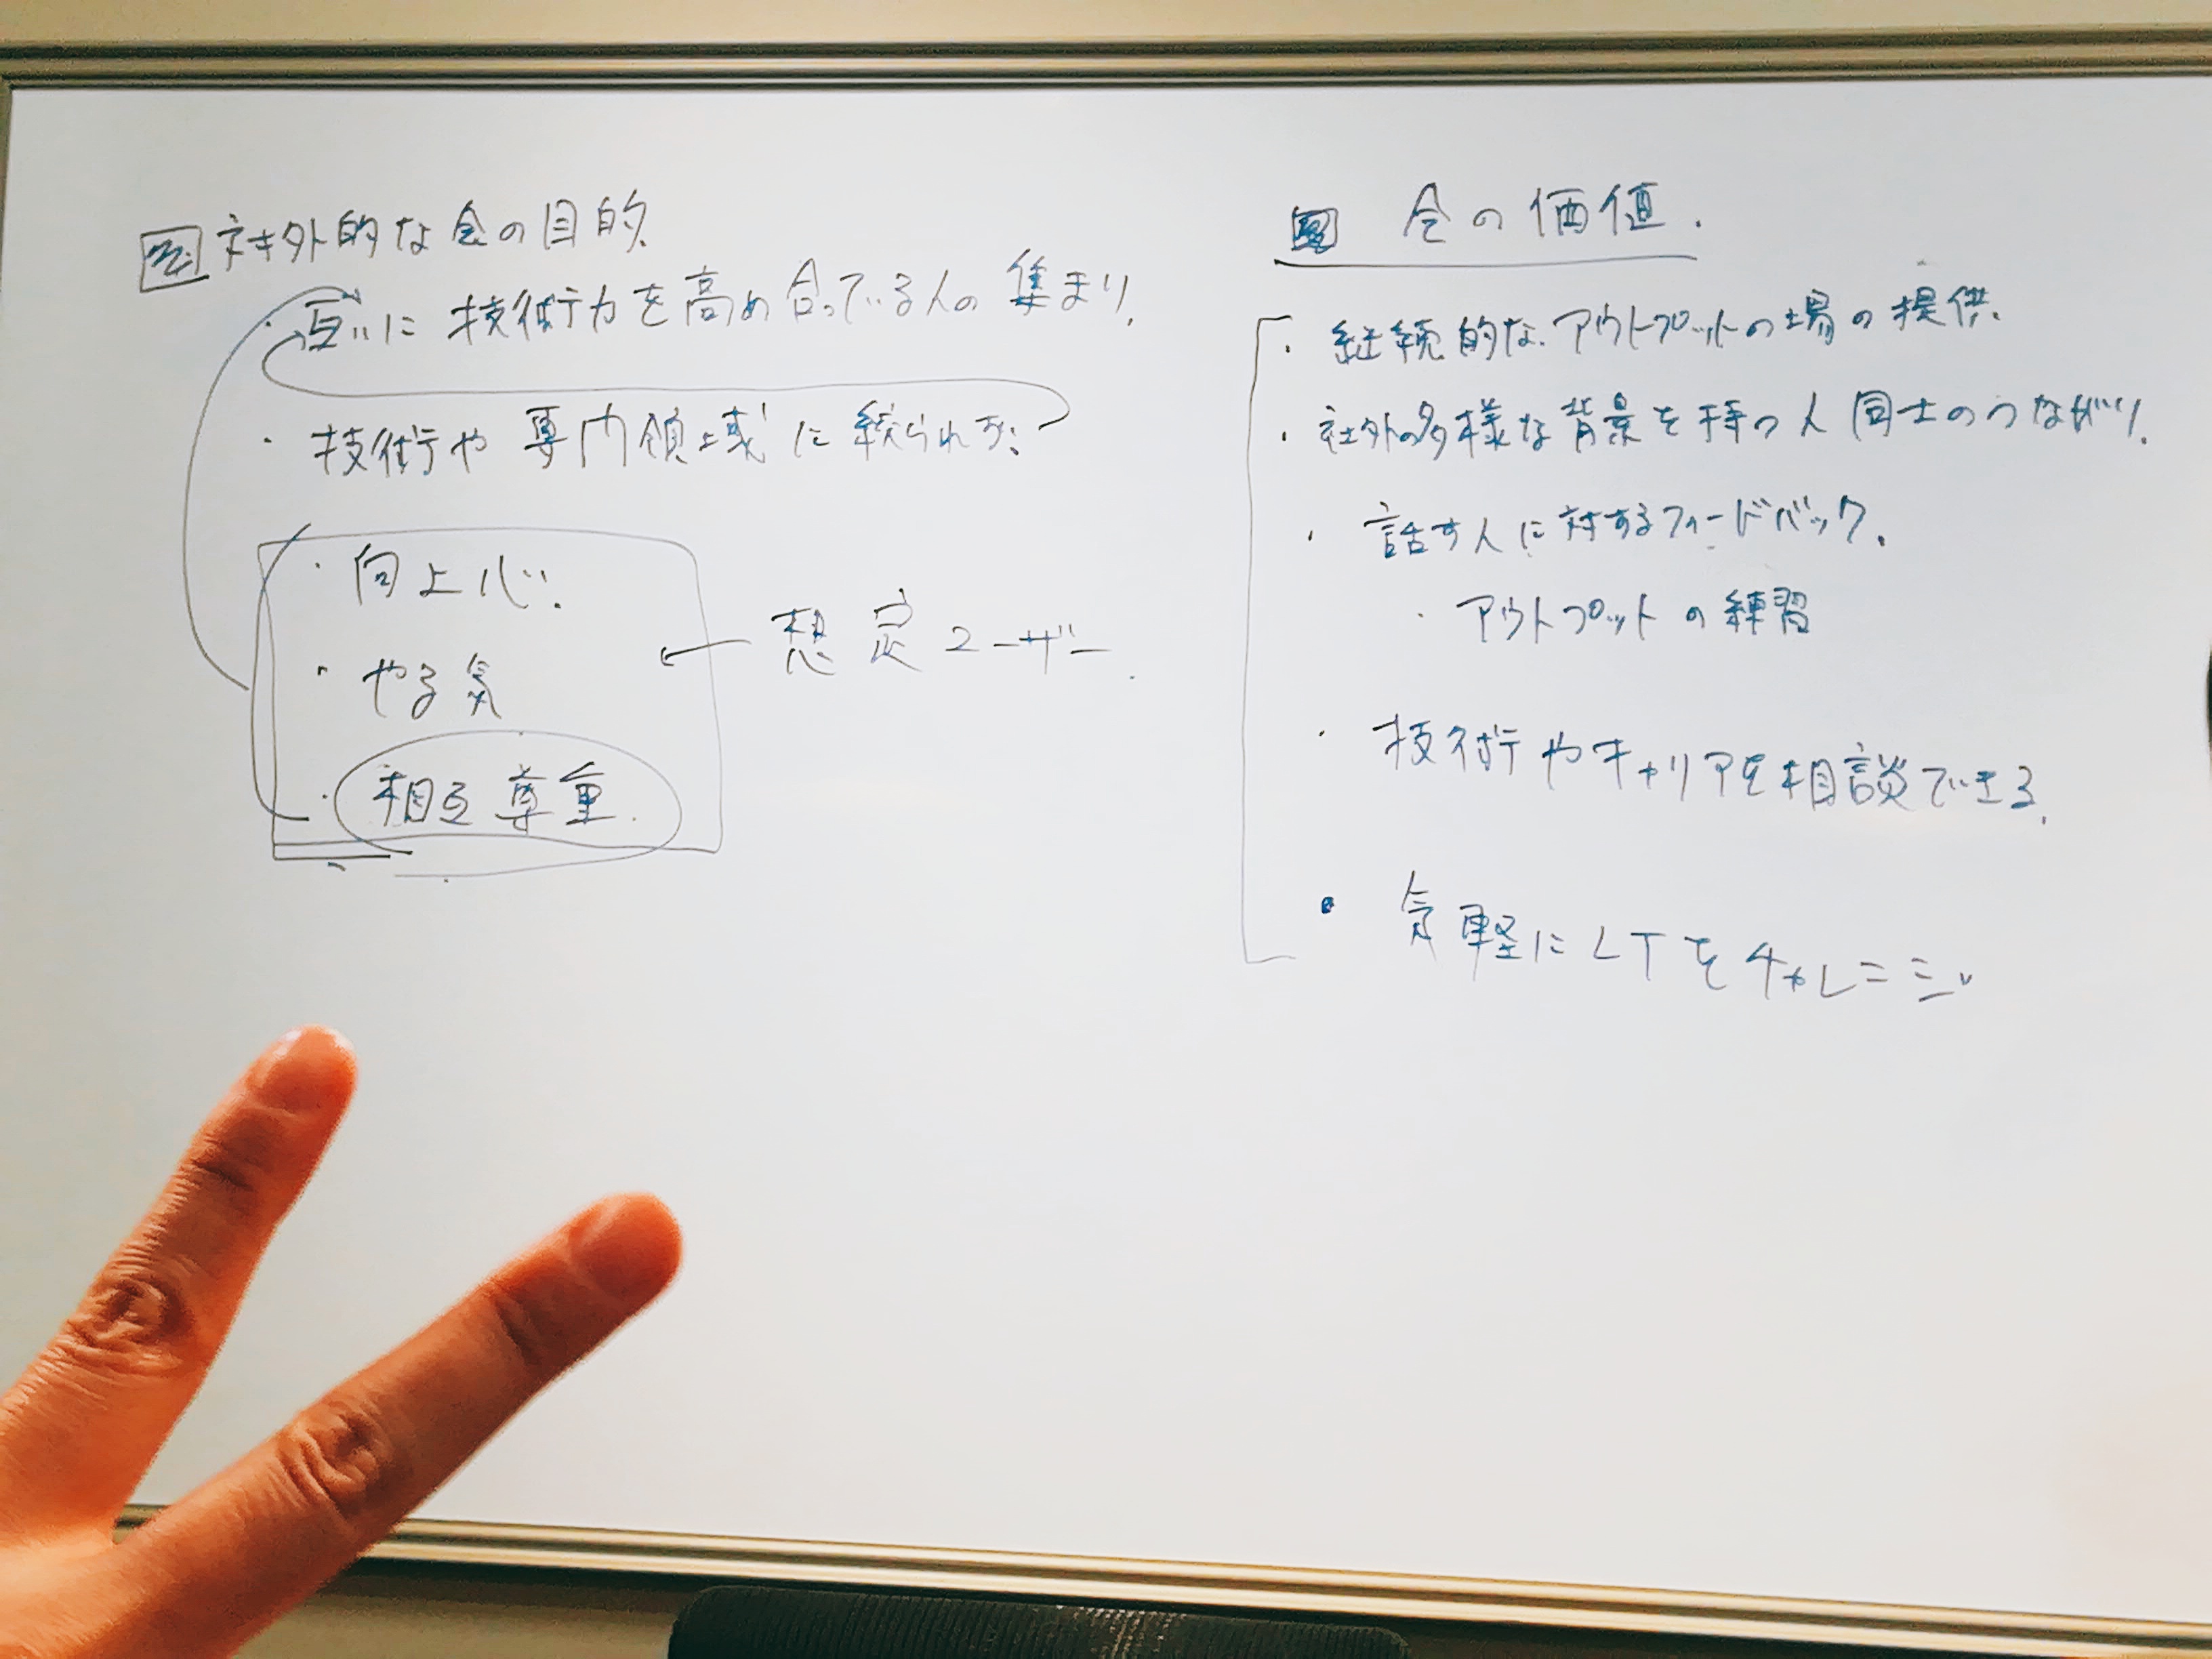 社外的な会の目的
・互いに技術力を高め合っている人の集まり.
・技術や専門領域に絞られず、
・向上心.
・やる気
・相互尊重.
想定ユーザー.
会の価値.
・継続的なアウトプットの場の提供.
・社外の多様な背景を持つ人同士のつながり.
・話す人に対するフィードバック.
・アウトプットの練習
・技術やキャリアを相談できる.
・気軽にLTをチャレンジ